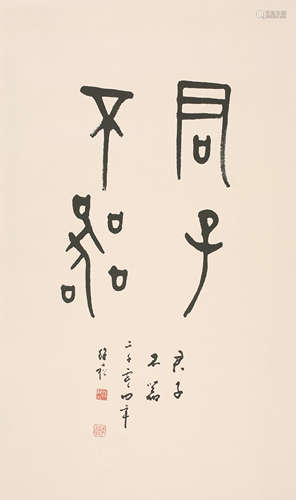 君子
不器
君子
不器
二千零四年